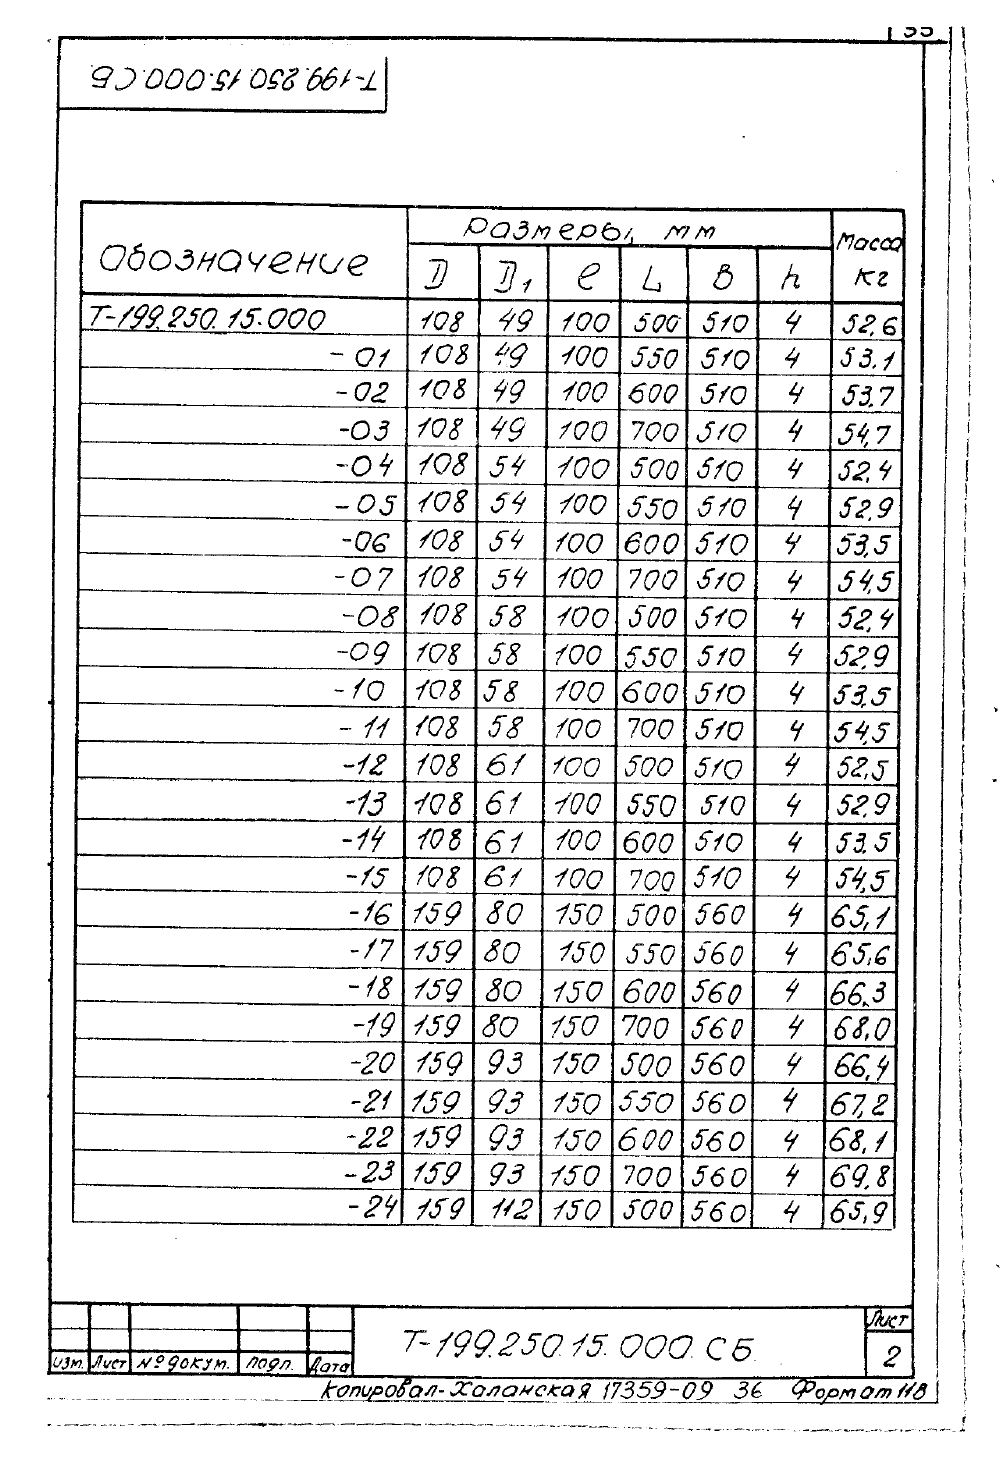 35
Т-199.250.15.000.СБ
Обозначение Размеры, мм Масса кг
D D1 l L В h
Т-199.250.15.000 108 49 100 500 510 4 52,6
-01 108 49 100 550 510 4 53,1
-02 108 49 100 600 510 4 53,7
-03 108 49 100 700 510 4 54,7
-04 108 54 100 500 510 4 52,4
-05 108 54 100 550 510 4 52,9
-06 108 54 100 600 510 4 53,5
-07 108 54 100 700 510 4 54,5
-08 108 58 100 500 510 4 52,4
-09 108 58 100 550 510 4 52,9
-10 108 58 100 600 510 4 53,5
-11 108 58 100 700 510 4 54,5
-12 108 61 100 500 510 4 52,5
-13 108 61 100 550 510 4 52,9
-14 108 61 100 600 510 4 53,5
-15 108 61 100 700 510 4 54,5
-16 159 80 150 500 560 4 65,1
-17 159 80 150 550 560 4 65,6
-18 159 80 150 600 560 4 66,3
-19 159 80 150 700 560 4 68,0
-20 159 93 150 500 560 4 66,4
-21 159 93 150 550 560 4 67,2
-22 159 93 150 600 560 4 68,1
-23 159 93 150 700 560 4 69,8
-24 159 112 150 500 560 4 65,9
Т-199.250.15.000.СБ
Лист
2
Изм. Лист № докум. Подп. Дата
Копировал-Халанская 17359-09 36 Формат 11в